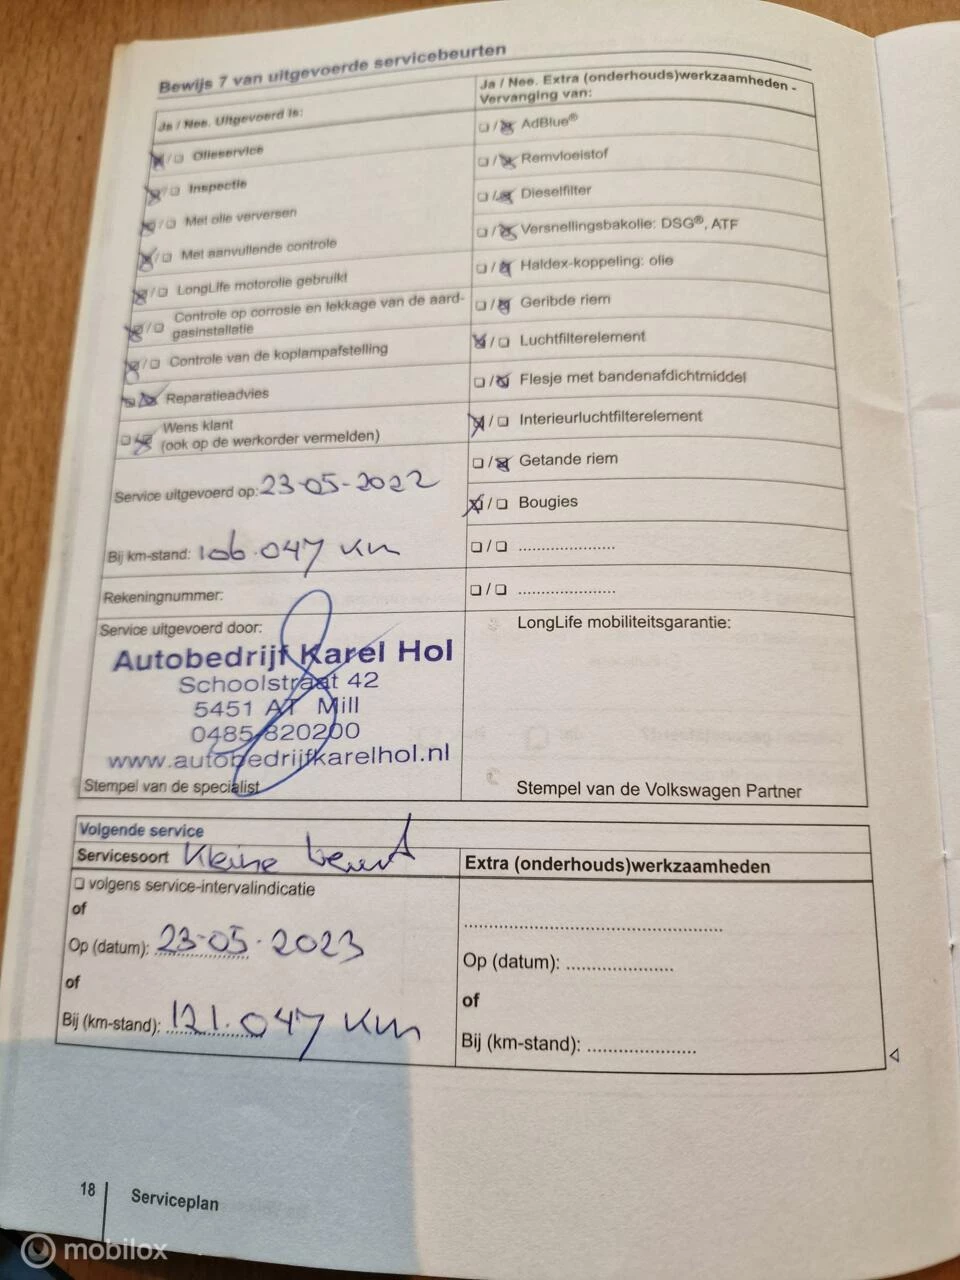 Bewijs 7 van uitgevoerde servicebeurten
Ja / Nee. Uitgevoerd is:
☒/☐ Olieservice
☒/☐ Inspectie
☒/☐ Met olie verversen
☒/☐ Met aanvullende controle
☒/☐ LongLife motorolie gebruikt
☒/☐ Controle op corrosie en lekkage van de aard-
gasinstallatie
☒/☐ Controle van de koplampafstelling
☐/☒ Reparatieadvies
☐/☒ Wens klant
(ook op de werkorder vermelden)
Service uitgevoerd op: 23-05-2022
Bij km-stand: 106.047 KM
Rekeningnummer:
Service uitgevoerd door:
Autobedrijf Karel Hol
Schoolstraat 42
5451 AT Mill
0485-820200
www.autobedrijfkarelhol.nl
Stempel van de specialist
Ja / Nee. Extra (onderhouds)werkzaamheden -
Vervanging van:
☐/☒ AdBlue®
☐/☒ Remvloeistof
☐/☒ Dieselfilter
☐/☒ Versnellingsbakolie: DSG®, ATF
☐/☒ Haldex-koppeling: olie
☐/☒ Geribde riem
☒/☐ Luchtfilterelement
☐/☒ Flesje met bandenafdichtmiddel
☒/☐ Interieurluchtfilterelement
☐/☒ Getande riem
☒/☐ Bougies
☐/☐ .....................
☐/☐ .....................
LongLife mobiliteitsgarantie:
Stempel van de Volkswagen Partner
Volgende service
Servicesoort Kleine beurt
☐ volgens service-intervalindicatie
of
Op (datum): 23-05-2023
of
Bij (km-stand): 121.047 KM
Extra (onderhouds)werkzaamheden
..................................................
Op (datum): .....................
of
Bij (km-stand): .....................
18 Serviceplan
mobilox